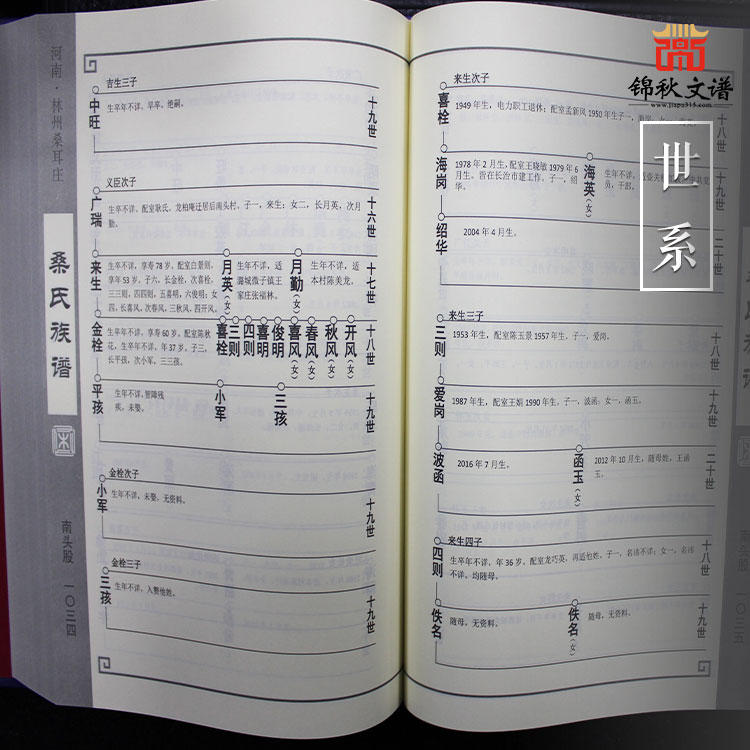 河南·林州桑耳庄
桑氏族谱
南头股 一〇三四
吉生三子
中旺
生卒年不详，早卒，绝嗣。
十九世
义臣次子
广瑞
生卒年不详，配室耿氏，龙柏庵迁居后南头村，子一，来生；女二，长月英，次月勤。
十六世
来生
生卒年不详，享寿78岁，配室白景则，
享年53岁，子六，长金栓，次喜栓，
三三则，四四则，五喜明，六俊明；女
四，长喜风，次春风，三秋风，四开风。
月英（女）
生年不详，适
潞城微子镇王
家庄张福林。
月勤（女）
生年不详，适
本村陈美龙。
十七世
金栓
生卒年不详，享寿60岁，配室陈秋
花，生卒年不详，年37岁，子三，
长平孩，次小军，三三孩。
喜栓
三则
四则
喜明
俊明
喜风（女）
春风（女）
秋风（女）
开风（女）
十八世
平孩
生年不详，智障残
疾，未娶。
小军
三孩
十九世
金栓次子
小军
生年不详，未娶，无资料。
十九世
金栓三子
三孩
生年不详，入赘他姓。
十九世
锦秋文谱
www.jiapu315.com
世系
来生次子
喜栓
1949年生，电力职工退休；配室孟新风1950年生子一，
十八世
海岗
1978年2月生，配室王晓敏1979年6
月生。皆在长治市建工作。子一，绍
华。
海英（女）
生年不详，
员，干部。
绍华
2004年4月生。
二十世
来生三子
三则
1953年生，配室陈玉景1957年生，子一，爱岗。
十八世
爱岗
1987年生，配室王娟1990年生，子一，波函；女一，函玉。
十九世
波函
2016年7月生。
函玉（女）
2012年10月生，随母姓，王函
玉。
二十世
来生四子
四则
生卒年不详，年36岁，配室龙巧英，再适他姓，子一，名讳不详；女一，名讳
不详，均随母。
十八世
佚名
随母，无资料。
佚名（女）
随母，无资料。
十九世